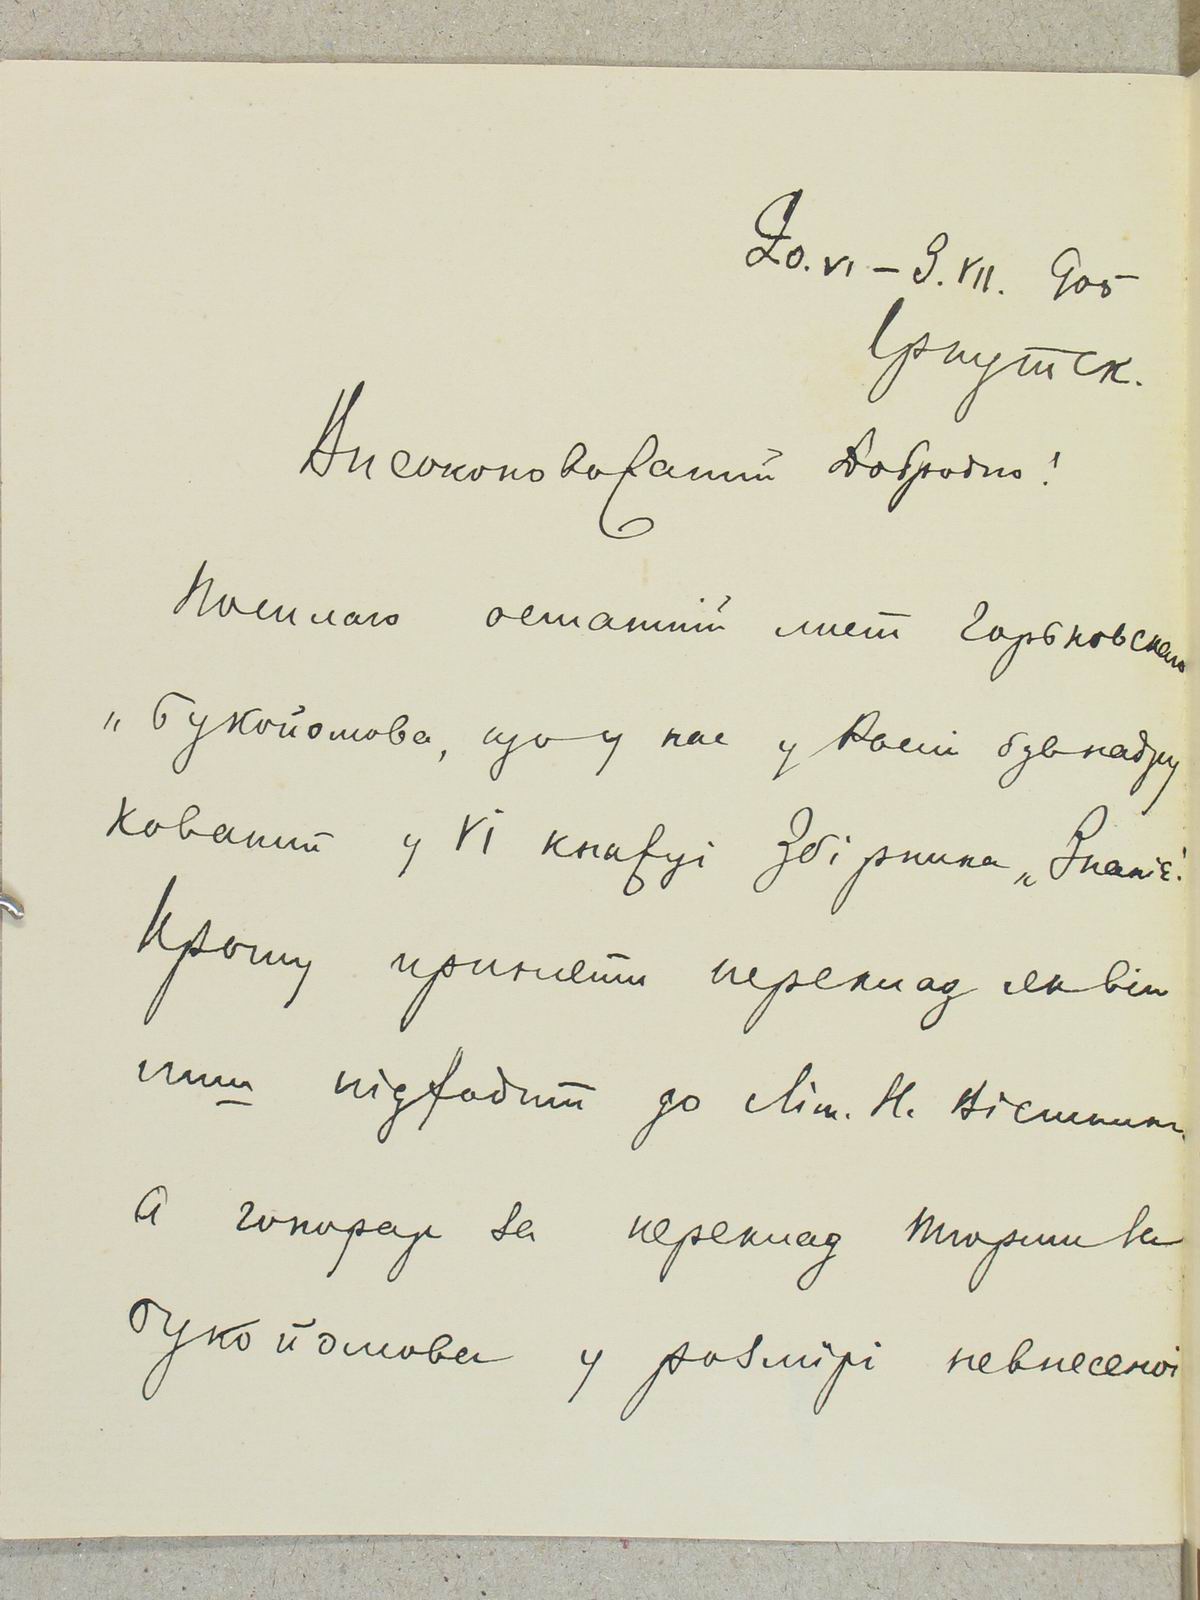 20.VI – 3.VII. 905
Іркутск.
Високоповажаний Добродію!
Посилаю останній лист Горьковского
„Букойомова, що у нас у Росиї був надру
кований у VI книжці Збірника „Знаніє."
Прошу прийняти переклад як він
підходит до Літ. Н. Вістника.
А гонорар за переклад Тюрми та
Букойомова у розмірі невнесеної